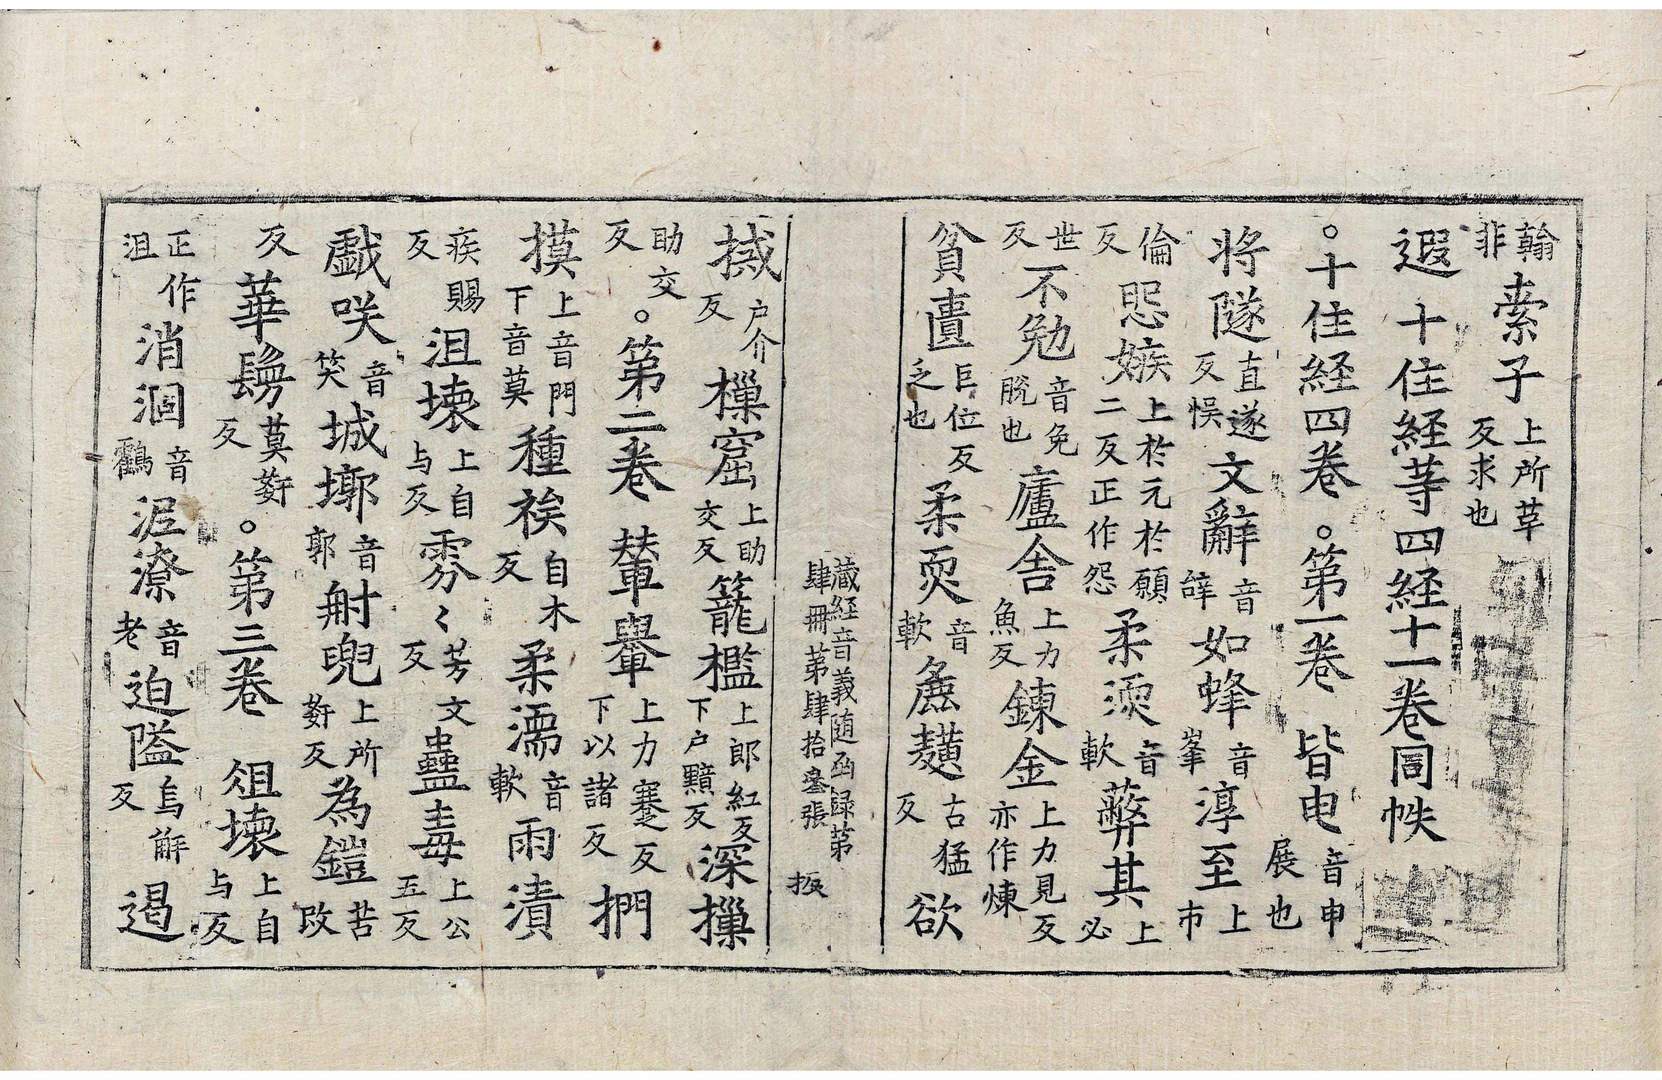 翰非索子上所草反求也
遐十住経䓁四経十一卷同帙
。十住経四卷。第一卷皆申音申展也
将隧直遂反悮文辭音辝如蜂音峯淳至上市
倫反恖嫉上於元於願二反正作怨柔渜音軟弊其上必
世反不勉音免脫也廬舎上力魚反鍊金上力見反亦作煉
貧匱巨位反乏也柔耎音軟麁䵃古猛反欲
藏経音義随函録第肆冊第肆拾叁張
㧊
㨔户介反樔窟上助交反籠檻上郎紅反下户黯反深摷
助交反。第二卷輦轝上力蹇反下以諸反捫
摸上音門下音莫種裖自木反柔濡音軟雨漬
疾賜反沮壊上自与反雰〻芳文反蠱毒上公五反
戱咲音笑城墎音郭射兜上所㜤反為鎧苦改
反華鬘莫㜤反。第三卷俎壊上自与反
正作沮消涸音鸖泥潦音老迫隘烏懈反遏